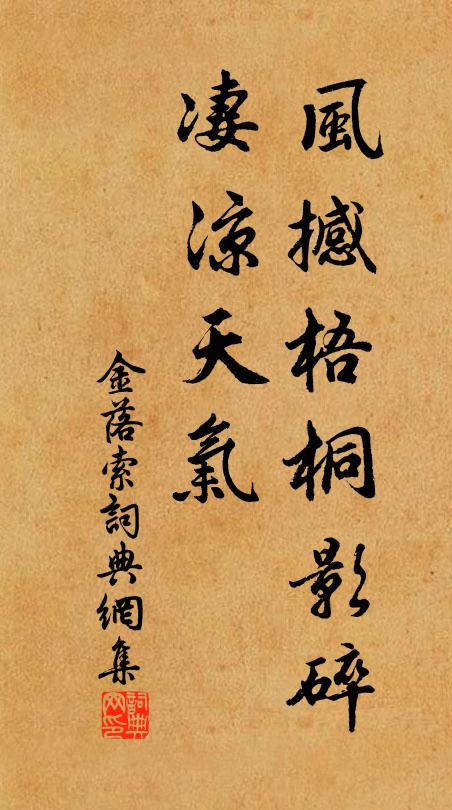 風撼梧桐影碎
凄涼天氣
金落索詞典網集
詞典網印